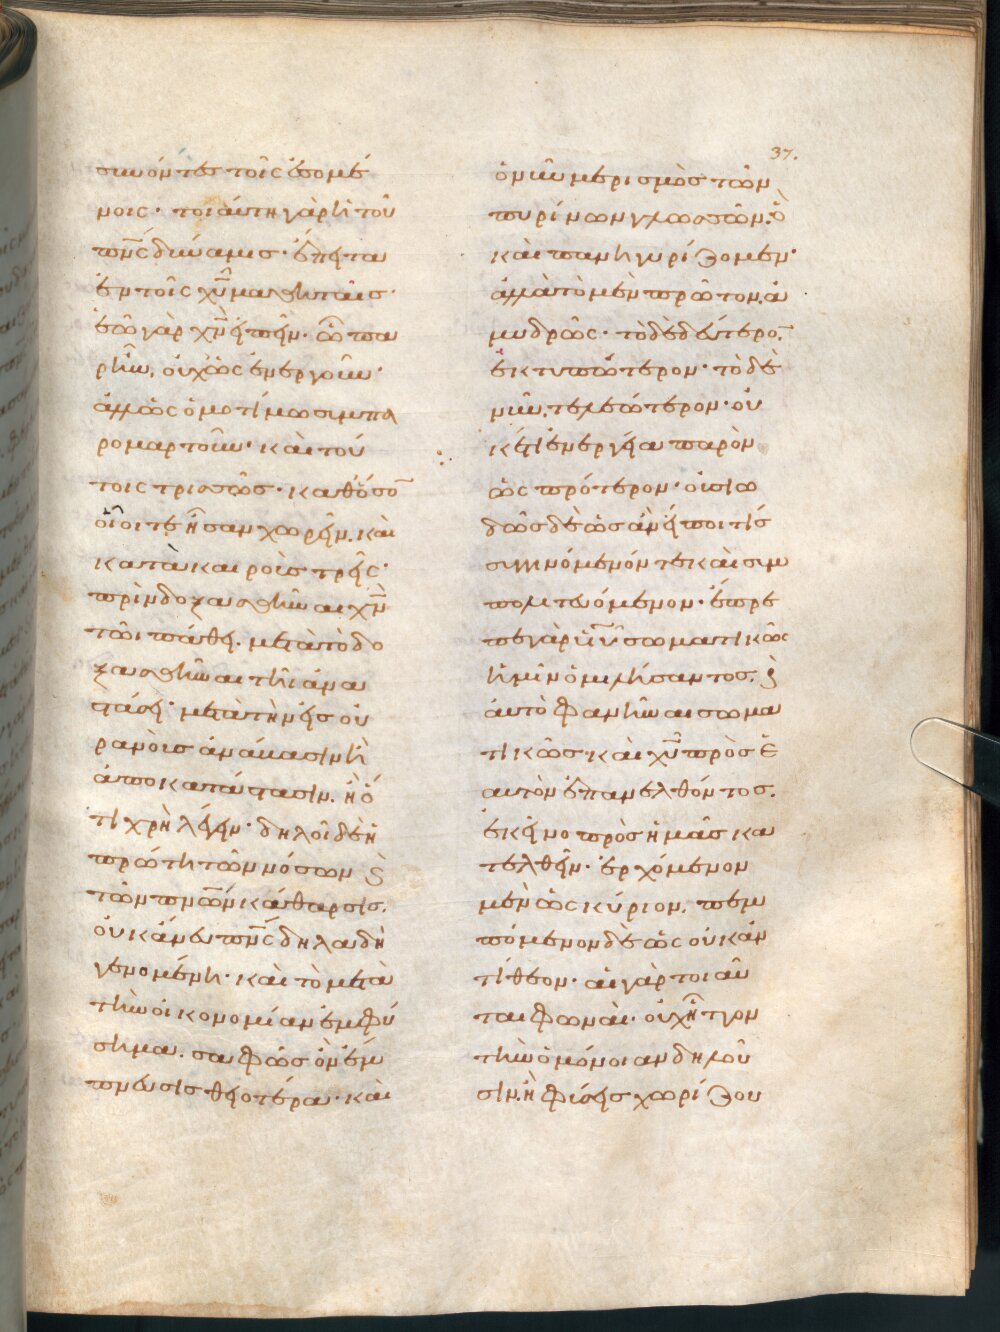 37.
σινόντες τοῖς ἐσομέ
νοις· τοιαύτη γὰρ ἡ τοῦ
πν̅ς δύναμις· ἔπειτα
ἐν τοῖς χυ̅ μαθηταῖς·
ἐῶ γὰρ χν̅ εἰπεῖν· ὧ πα
ρῆν, οὐχ ὡς ἐνεργοῦν·
ἀλλ' ὡς ὁμοτίμω συμπα
ρομαρτοῦν· καὶ τού
τοις τρισσῶς· καθόσο̅
οἷοί τε ἦσαν χωρεῖν. καὶ
κατὰ καιροὺς τρεῖς·
πρὶν δοξασθῆναι χν̅
τῶι πάθει. μετὰ τὸ δο
ξασθῆναι τῆι ἀνα
στάσει· μετὰ τὴν εἰς οὐ
ρανοὺς ἀνάβασιν ἢ
ἀποκατάστασιν. ἢ ὅ
τι χρὴ λέγειν· δηλοῖ δὲ ἡ
πρώτη τῶν νόσων ϗ
τῶν πν̅άτων κάθαρσις.
οὐκ ἄνευ πν̅ς δηλαδὴ
γενομένη· καὶ τὸ μετὰ
τὴν οἰκονομίαν ἐμφύ
σημα. σαφῶς ὂν ἔμ
πνευσις θειοτέρα· καὶ
ὁ νῦν μερισμὸς τῶν
πυρίνων γλωσσῶν. ὃ
καὶ πανηγυρίζομεν·
ἀλλὰ τὸ μὲν πρῶτον. ἀ
μυδρῶς· τὸ δὲ δεύτερο̅.
ἐκτυπώτερον· τὸ δὲ
νῦν. τελεώτερον· οὐ
κέτι ἐνεργεία παρὸν
ὡς πρότερον· οὐσιω
δῶς δὲ ὡς ἂν εἴποι τίς
συγγινόμενόν τε καὶ συμ
πολιτευόμενον· ἔπρε
πε γὰρ υἱοῦ σωματικῶς
ἡμῖν ὁμιλήσαντος. ϗ
αὐτὸ φανῆναι σωμα
τικῶς καὶ χυ̅ πρὸς ἑ
αυτὸν ἐπανελθόντος.
ἐκεῖνο πρὸς ἡμᾶς κα
τελθεῖν· ἐρχόμενον
μὲν ὡς κύριον. πεμ
πόμενον δὲ ὡς οὐκ ἀν
τίθεον· αἱ γὰρ τοιαῦ
ται φωναὶ. οὐχ ἧττον
τὴν ὁμόνοιαν δηλοῦ
σιν. ἢ φύσεις χωρίζου